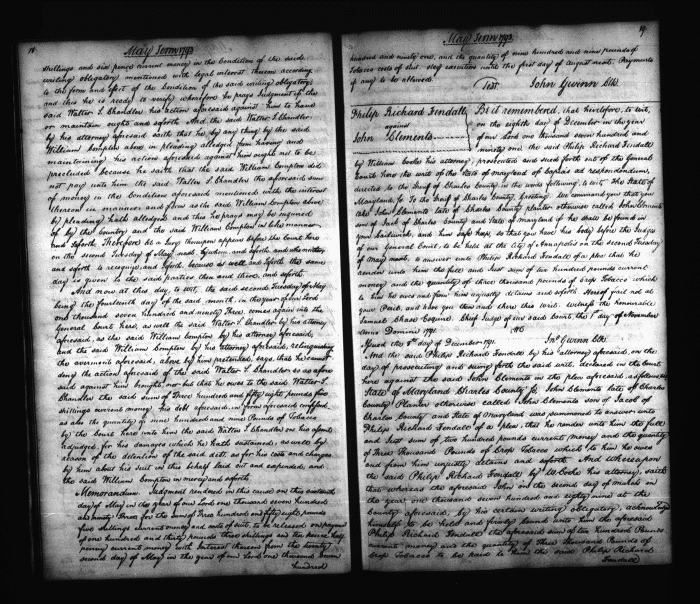 18
May Term 1793
shillings and six pence current money in the Condition of the said
writing obligatory mentioned with legal interest thereon according
to the form and effect of the Condition of the said writing obligatory
and this he is ready to verify wherefore he prays Judgment if the
said Walter S. Chandler his action aforesaid against him to have
or maintain ought and soforth And the said Walter S. Chandler
by his attorney aforesaid saith that he by any thing by the said
William Compton above in pleading alledged from having and
maintaining his action aforesaid against him ought not to be
precluded because he saith that the said William Compton did
not pay unto him the said Walter S. Chandler the aforesaid sum
of money in the Condition aforesaid mentioned with the interest
thereon in manner and form as the said William Compton above
by pleading hath alledged and this he prays may be enquired
of by the Country and the said William Compton in like manner
and soforth Therefore let a Jury thereupon appear before the Court here
on the second Tuesday of May next &c whom and soforth and who neither
and soforth to recognize and soforth because as well and soforth the same
day is given to the said parties then and there and soforth
And now at this day, to wit, the said second Tuesday of May
being the fourteenth day of the said month, in the year of our Lord
one thousand seven hundred and ninety three, comes again into the
General Court here, as well the said Walter S. Chandler by his attorney
aforesaid, as the said William Compton by his attorney aforesaid,
and the said William Compton by his attorney aforesaid, relinquishing
the averment aforesaid, above by him pretended, says, that he cannot
deny the action aforesaid of the said Walter S. Chandler so as afore
said against him brought, nor but that he owes to the said Walter S.
Chandler the said sum of Three hundred and fifty eight pounds five
shillings current money his debt aforesaid, in form aforesaid confessed,
as also the quantity of nine hundred and nine Pounds of Tobacco
by the Court here unto him the said Walter S. Chandler on his assent
adjudged for his damages which he hath sustained, as well by
reason of the detention of the said debt, as for his costs and charges
by him about his suit in this behalf laid out and expended, and
the said William Compton in mercy and soforth
Memorandum Judgment rendered in this cause on this sixteenth
day of May in the year of our Lord one thousand seven hundred
and ninety three for the sum of Three hundred and fifty eight pounds
five shillings current money and costs of suit, to be released on payment
of one hundred and thirty pounds three shillings and ten pence half
penny current money with Interest thereon from the twenty
second day of May in the year of our Lord one thousand seven
hundred
May Term 1793
19
hundred and ninety one, and the quantity of nine hundred and nine pounds of
Tobacco costs of suit. stay execution until the first day of August next. Payments
if any to be allowed.
Test John Gwinn Clk.
Philip Richard Fendall
against
John Clements
Be it remembered, that heretofore, to wit,
on the eighth day of December in the year
of our Lord one thousand seven hundred and
ninety one the said Philip Richard Fendall
by William Cooke his attorney, prosecuted and sued forth out of the General
Court here the writ of the State of maryland of Capias ad respondendum,
directed to the Sheriff of Charles County in the words following, to wit. The State of
Maryland, Sc. To the Sheriff of Charles County, Greeting. We command you that you
take John Clements late of Charles County planter otherwise called John Clements
son of Jacob of Charles County and State of maryland if he shall be found in
your bailiwick, and him safe keep, so that you have his body before the Judges
of our General Court, to be held at the City of Annapolis on the second Tuesday
of May next, to answer unto Philip Richard Fendall of a plea that he
render unto him the full and Just sum of two hundred pounds current
money and the quantity of three thousand Pounds of Crop Tobacco which
to him he owes and from him unjustly detains and soforth Hereof fail not at
your Peril, and have you then and there this writ. Witness the honourable
Samuel Chase Esquire, Chief Judge of our said Court the 1st day of November
Anno Domini 1791.
Issued the 8th day of December 1791. Jno. Gwinn Clk.
And the said Philip Richard Fendall by his attorney aforesaid, on the
day of prosecuting and suing forth the said writ, declared in the Court
here against the said John Clements in the plea aforesaid, as follows
State of Maryland Charles County Sc. John Clements late of Charles
County Planter otherwise called John Clements son of Jacob of
Charles County and State of Maryland was summoned to answer unto
Philip Richard Fendall of a plea, that he render unto him the full
and Just sum of two hundred pounds Current money and the quantity
of Three Thousand Pounds of Crop Tobacco which to him he owes
and from him unjustly detains and soforth And Whereupon
the said Philip Richard Fendall by W. Cooke his attorney, saith
that whereas the aforesaid John on the second day of march in
the year one thousand seven hundred and eighty nine at the
County aforesaid, by his certain writing obligatory, acknowledged
himself to be held and firmly bound unto him the aforesaid
Philip Richard Fendall the aforesaid sum of two hundred Pounds
current money and the quantity of Three Thousand Pounds of
Crop Tobacco to be paid to him the said Philip Richard
Fendall